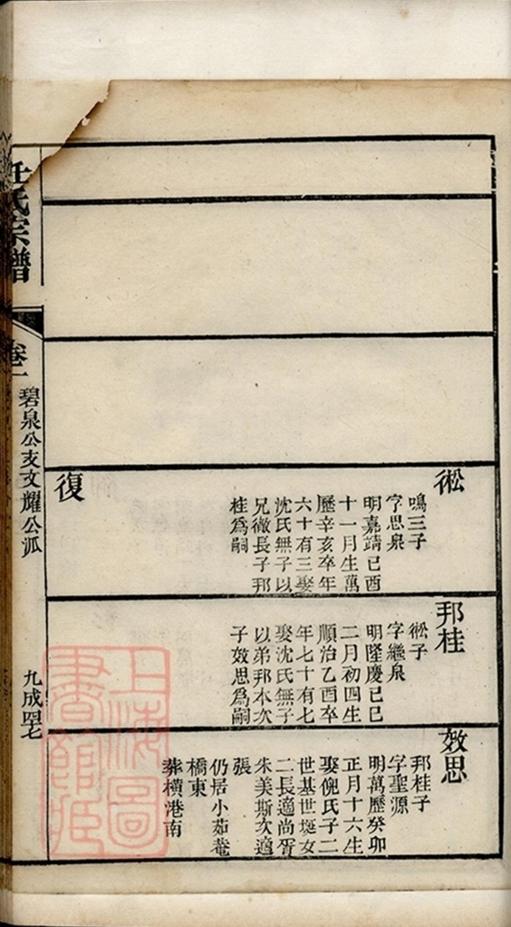 衸
鳴三子
字思泉
明嘉靖己酉
十一月生萬
歷辛亥卒年
六十有三娶
沈氏無子以
兄微長子邦
桂為嗣
復
邦桂
衸子
字繼泉
明隆慶己巳
二月初四生
順治乙酉卒
年七十有七
娶沈氏無子
以弟邦本次
子效思為嗣
效思
邦桂子
字聖源
明萬歷癸卯
正月十六生
娶倪氏子二
世基世埏女
二長適尚胥
朱美斯次適
張
仍居小茹菴
橋東
葬橫港南
氏宗譜
卷一
碧泉公支文耀公派
九成
上海圖
書館